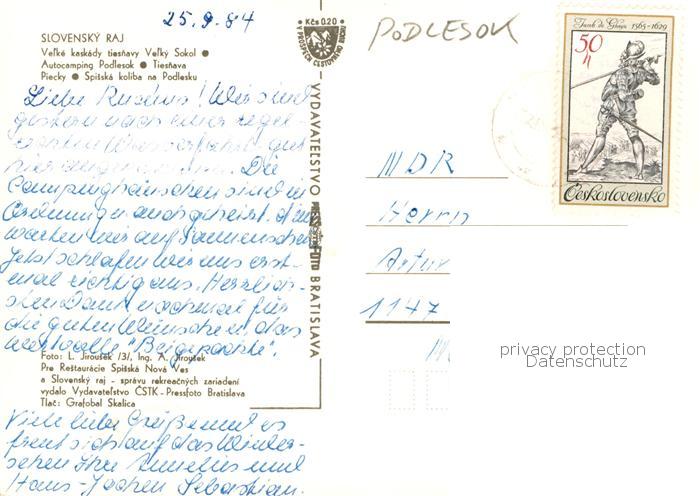 25.9.84
SLOVENSKÝ RAJ
Veľké kaskády tiesňavy Veľký Sokol ●
Autocamping Podlesok ● Tiesňava
Piecky ● Spišská koliba na Podlesku
Kčs 0.20
V PROSPECH CESTOVNÉHO RUCHU
PODLESOK
Jacob de Gheyn 1565-1629
50 h
Československo
Liebe ! Wir sind
gestern nach einer
gut
hier angekommen. Die
Campinghäuschen sind in
Ordnung u. auch geheizt, dann
warten wir auf Sonnenschein
Jetzt schlafen wir uns erst-
mal richtig aus. Herzlich-
sten Dank nochmal für
die guten Wünsche u. das
wertvolle "Beigepackte".
VYDAVATEĽSTVO PRESSFOTO BRATISLAVA
MDR
Herrn
Artur
1147
Foto: L. Jiroušek /3/, Ing. A. Jiroušek
Pre Reštaurácie Spišská Nová Ves
a Slovenský raj - správu rekreačných zariadení
vydalo Vydavateľstvo ČSTK - Pressfoto Bratislava
Tlač: Grafobal Skalica
Viele liebe Grüße und es
freut sich auf das Wieder-
sehen Ihre Annelies und
Hans-Jochen Sebastian.
privacy protection
Datenschutz